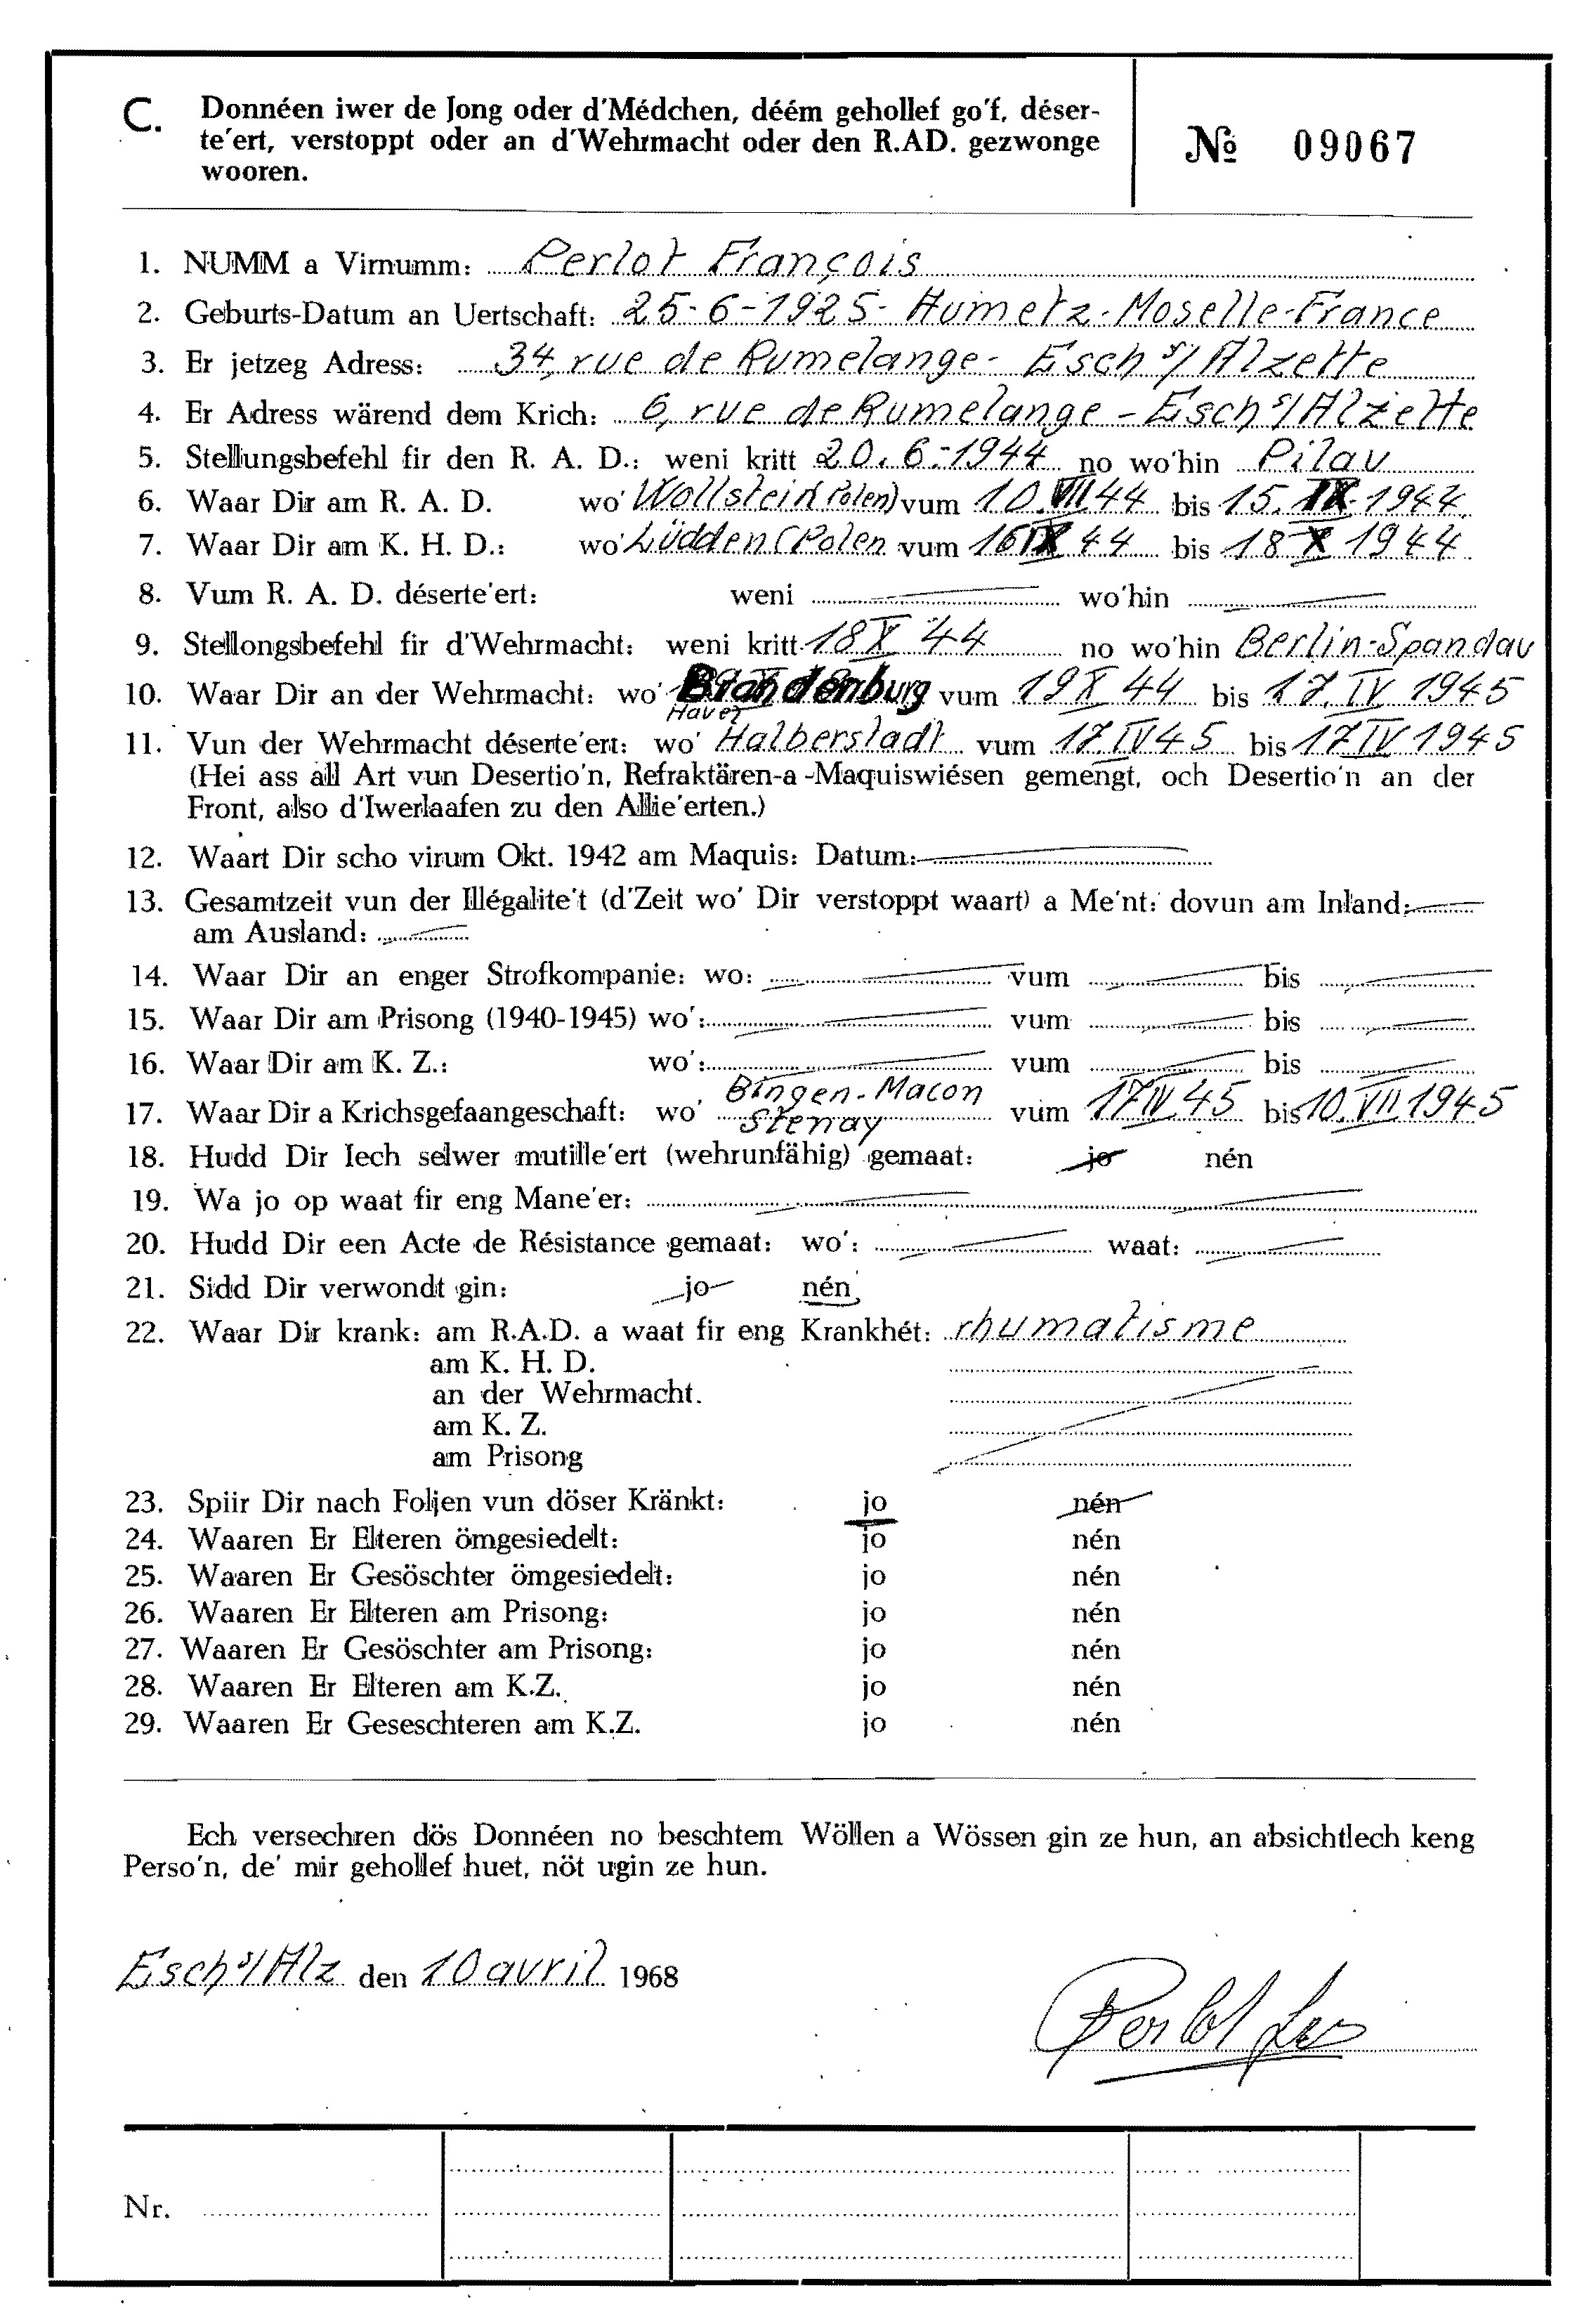 C. Donnéen iwer de Jong oder d'Médchen, déém gehollef go'f, déser-
te'ert, verstoppt oder an d'Wehrmacht oder den R.AD. gezwonge
wooren.
№ 09067
1. NUMM a Virnumm: Perlot François
2. Geburts-Datum an Uertschaft: 25-6-1925- Humetz-Moselle-France
3. Er jetzeg Adress: 34, rue de Rumelange - Esch s/Alzette
4. Er Adress wärend dem Krich: 6, rue de Rumelange - Esch s/Alzette
5. Stellungsbefehl fir den R. A. D.: weni kritt 20.6.-1944 no wo'hin Pilau
6. Waar Dir am R. A. D. wo' Wollstein (Polen) vum 10.VII 44 bis 15.IX.1944.
7. Waar Dir am K. H. D.: wo' Lüdden (Polen vum 16 IX 44 bis 18 X 1944
8. Vum R. A. D. déserte'ert: weni wo'hin
9. Stellongsbefehl fir d'Wehrmacht: weni kritt 18 X 44 no wo'hin Berlin-Spandau
10. Waar Dir an der Wehrmacht: wo' Brandenburg vum 19 X 44 bis 17. IV 1945
Havel
11. Vun der Wehrmacht déserte'ert: wo' Halberstadt vum 17.IV 45 bis 17 IV 1945
(Hei ass all Art vun Desertio'n, Refraktären-a -Maquiswiésen gemengt, och Desertio'n an der
Front, also d'Iwerlaafen zu den Allie'erten.)
12. Waart Dir scho virum Okt. 1942 am Maquis: Datum:
13. Gesamtzeit vun der Illégalite't (d'Zeit wo' Dir verstoppt waart) a Me'nt: dovun am Inland:
am Ausland:
14. Waar Dir an enger Strofkompanie: wo: vum bis
15. Waar Dir am Prisong (1940-1945) wo': vum bis
16. Waar Dir am K. Z.: wo': vum bis
17. Waar Dir a Krichsgefaangeschaft: wo' Bingen-Macon Stenay vum 17 IV 45 bis 10. VII 1945
18. Hudd Dir Iech selwer mutille'ert (wehrunfähig) gemaat: jo nén
19. Wa jo op waat fir eng Mane'er:
20. Hudd Dir een Acte de Résistance gemaat: wo': waat:
21. Sidd Dir verwondt gin: jo nén
22. Waar Dir krank: am R.A.D. a waat fir eng Krankhét: rhumatisme
am K. H. D.
an der Wehrmacht.
am K. Z.
am Prisong
23. Spiir Dir nach Foljen vun döser Kränkt: jo nén
24. Waaren Er Elteren ömgesiedelt: jo nén
25. Waaren Er Gesöschter ömgesiedelt: jo nén
26. Waaren Er Elteren am Prisong: jo nén
27. Waaren Er Gesöschter am Prisong: jo nén
28. Waaren Er Elteren am K.Z. jo nén
29. Waaren Er Geseschteren am K.Z. jo nén
Ech versechren dös Donnéen no beschtem Wöllen a Wössen gin ze hun, an absichtlech keng
Perso'n, de' mir gehollef huet, nöt ugin ze hun.
Esch s/Alz den 10 avril 1968
Perlot
Nr.